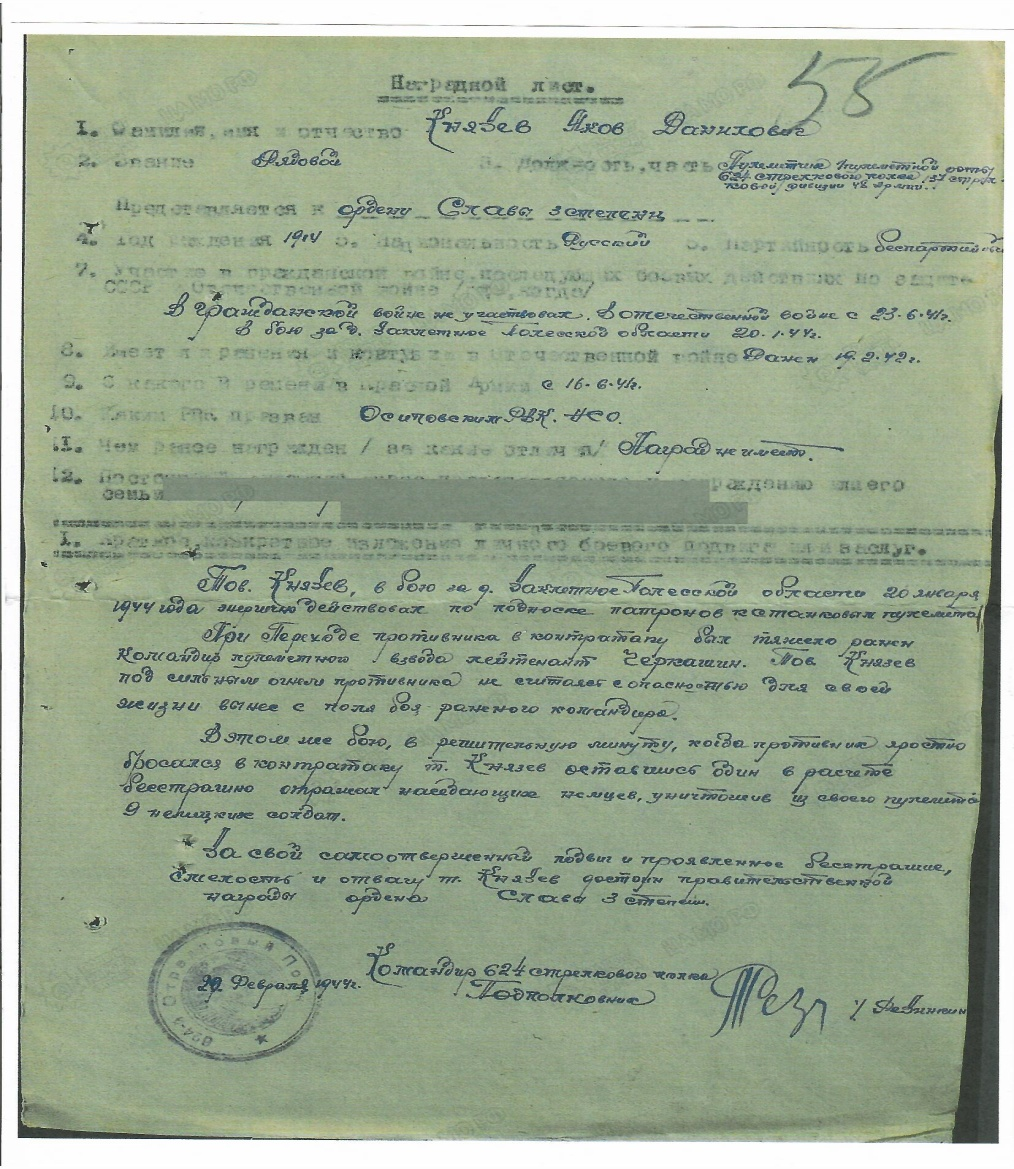 55
Наградной лист.
1. Фамилия, имя и отчество Князев Яков Данилович
2. Звание Рядовой 3. Должность, часть Пулеметчик пулеметной роты
624 стрелкового полка 137 стрел-
ковой дивизии 48 Армии.
Представляется к ордену Слава 3 степени
4. Год рождения 1914 5. Национальность Русский 6. Партийность беспартийный
7. Участие в гражданской войне, последующих боевых действиях по защите
СССР Отечественной войне /где, когда/
В Гражданской войне не участвовал. В отечественной войне с 23.6.41г.
В бою за д. Полесской области 20.1.44г.
8. Имеет ли ранения и контузии в Отечественной войне Ранен 19.2.42г.
9. С какого времени в Красной Армии с 16.6.41г.
10. Каким РВК призван Осиповским РВК. НСО.
11. Чем ранее награжден / за какие отличия/ Наград не имеет.
12.
семьи
1. Краткое, конкретное изложение личного боевого подвига или заслуг.
Тов. Князев, в бою за д. Полесской области 20 января
1944 года энергично действовал по подноске патронов к станковым пулемета
При Переходе противника в контратаку был тяжело ранен
Командир пулеметного взвода лейтенант Черкашин. Тов Князев
под сильным огнем противника не считаясь с опасностью для своей
жизни вынес с поля боя раненого командира.
В этом же бою, в решительную минуту, когда противник яростно
бросался в контратаку т. Князев оставшись один в расчете
бесстрашно отражал наседающих немцев, уничтожив из своего пулемета
9 немецких солдат.
За свой самоотверженный подвиг и проявленное бесстрашие,
Смелость и отвагу т. Князев достоин правительственной
награды ордена Слава 3 степени.
Командир 624 стрелкового полка
20 Февраля 1944г. Подполковник